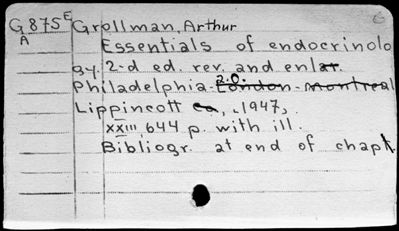 G875E Grollman, Arthur
A
Essentials of endocrinolo
gy. 2-d ed. rev. and enlar.
Philadelphia-London-Montreal
a.o.
Lippincott co, 1947.
XXIII, 644 p. with ill.
Bibliogr. at end of chapt.